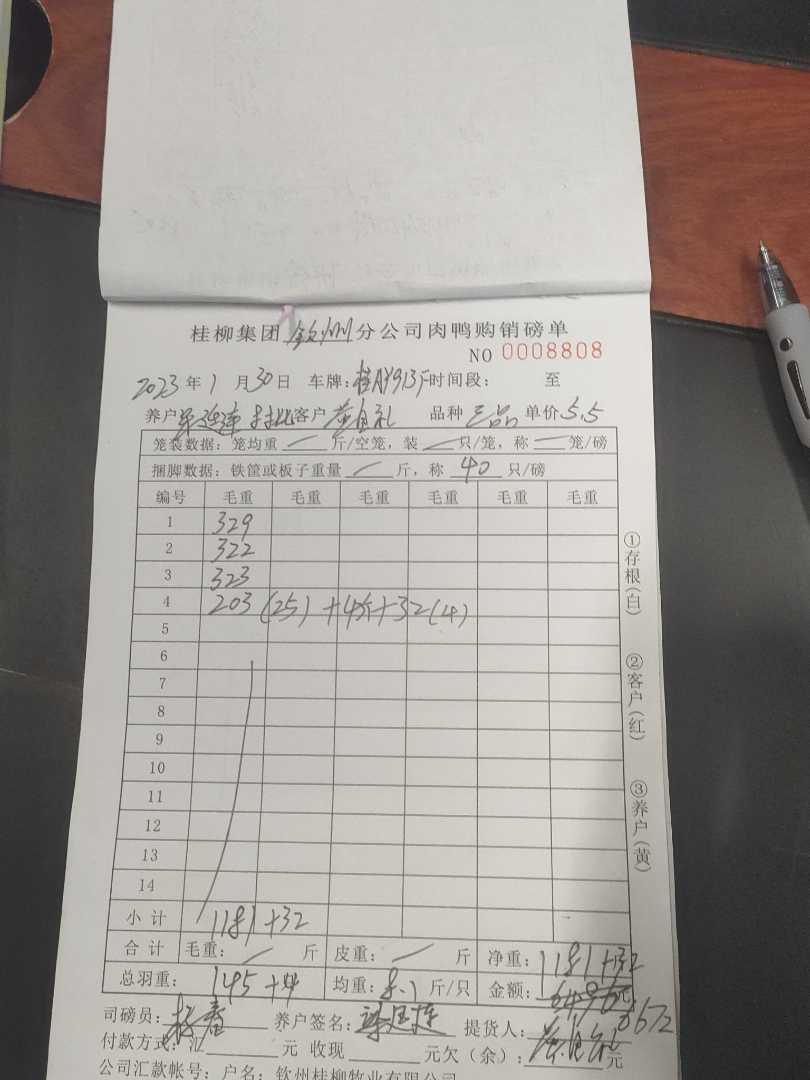 桂柳集团 钦州 分公司肉鸭购销磅单
NO 0008808
2023 年 1 月 30 日 车牌: 时间段: 至
养户 客户 黄自礼 品种 三品 单价 5.5
笼装数据: 笼均重 斤/空笼, 装 只/笼, 称 笼/磅
捆脚数据: 铁筐或板子重量 斤, 称 40 只/磅
编号 毛重 毛重 毛重 毛重 毛重 毛重
1 329
2 322
3 323
4 203 (25) +4斤+32(4)
5
6
7
8
9
10
11
12
13
14
小计 1181+32
合计 毛重: 斤 皮重: 斤 净重: 1181+32
总羽重: 145+4 均重: 8.1 斤/只 金额: 6496 元
6672
司磅员: 养户签名: 提货人: 黄自礼
付款方式: 汇 元 收现 元欠(余): 元
公司汇款帐号: 户名: 钦州桂柳牧业有限公司
①存根(白)
②客户(红)
③养户(黄)